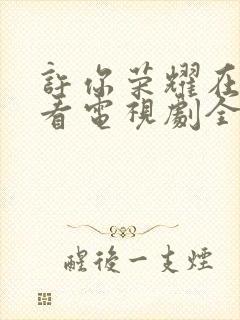 許你荣耀在
看電視劇全
醒後一支煙